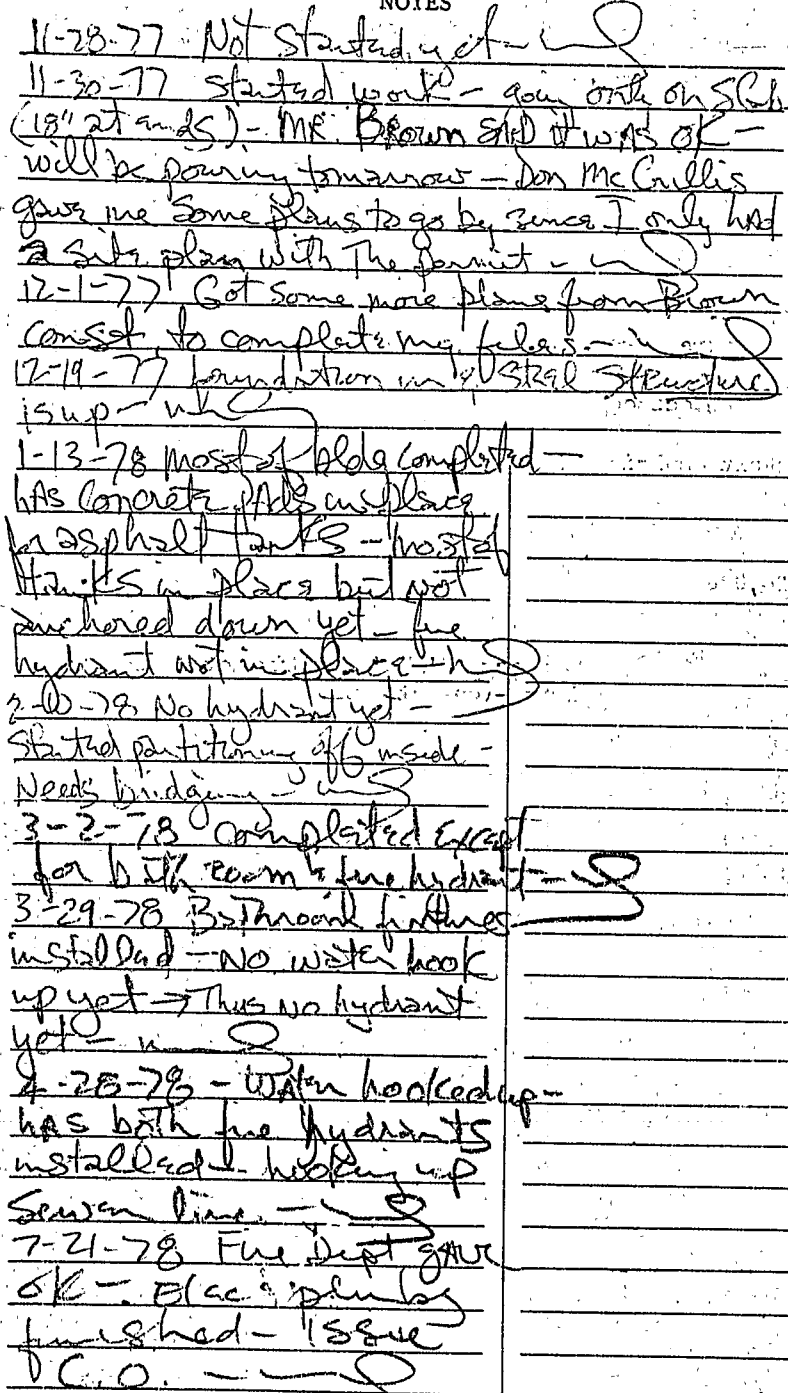 NOTES
11-28-77 Not Started yet -
11-30-77 Started work - going only on Slab
(18" at ends) - MR. Brown SAID it WAS OK -
will be pouring tomorrow - Don McCrillis
gave me Some plans to go by since I only had
a Site plan with The permit -
12-1-77 Got Some more plans from Brown
Const. to complete my files -
12-19-77 foundation in & Steel Structure
is up -
1-13-78 Most of bldg completed -
hAs Concrete PAds in place
for asphalt tanks - most of
tanks in place but not
anchored down yet - fire
hydrant not in place -
No hydrant yet -
Started partitioning off inside -
Needs bridging -
3-2-78 Completed Except
for bath room & fire hydrant -
3-29-78 Bathroom fixtures
installed - No water hook
up yet → Thus No hydrant
yet -
4-28-78 - Water hooked up -
hAs both fire hydrants
installed - hooking up
Sewer line -
7-21-78 Fire Dept gAve
OK - Elec & plumbg
finished - issue
C.O. -